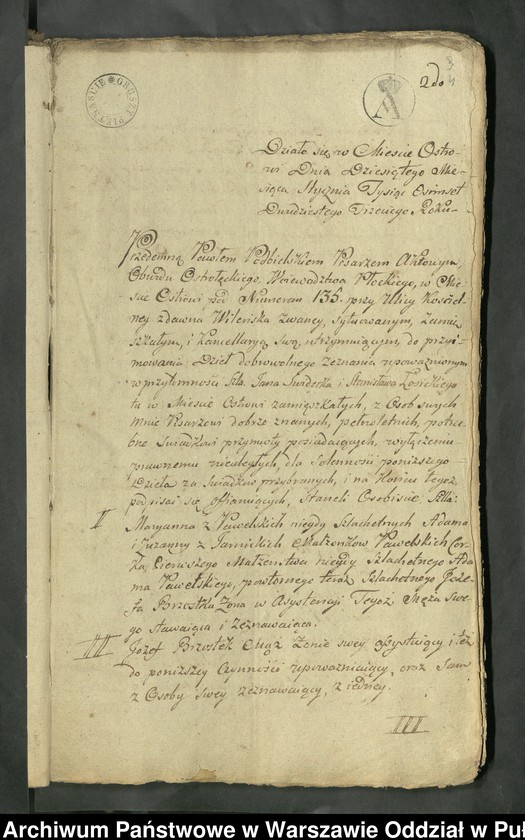 GROSZY PIETNASCIE
A
2do
Działo się w Miescie Ostro-
wi Dnia Dziesiątego Mie-
siąca Stycznia Tysiąc Osmset
Dwudziestego Trzeciego Roku
Przedemną Pawłem Podbielskiem Pisarzem Aktowym
Obwodu Ostrołęckiego, Wojewodztwa Płockiego, w Mie-
scie Ostrowi pod Numerem 135. przy Ulicy Koscie-
ney zdawna Wilenska zwaney, sytuowanym, Zamie-
szkałym, i Kancellaryą swą utrzymuiącym, do przyi-
mowania Dzieł dobrowolnego zeznania upoważnionym
w przytomnosci Szla. Jana Swiderka i Stanisława Zosickiego
tu w Miescie Ostrowi zamięszkałych, z Osob swych
mnie Pisarzowi dobrze znanych, pełnoletnich, potrze-
bne Swiadkowi przymioty posiadaiących, wyłączeniu
prawnemu nieuległych, dla Solennosci poniższego
Dzieła za Swiadkow przybranych, i na Koncu tegoż
podpisać się ofiaruiących, Staneli Osobiscie Szla:
I Maryanna z Pawelskich niegdy Szlachetnych Adama
i Zuzanny z Małżonkow Pawelskich Cor-
ka, pierwszego Małżenstwa niegdy Szlachetnego Ada
ma Pawelskiego, powtornego teraz Szlachetnego Joze-
fa Brzostka Zona w Assystencyi Tegoż Męża Swe-
go stawaiąca i zeznawaiąca.
II Jozef Brzostek Mąż Zonie swey assystuiący i też
do poniższey Czynnosci upoważniaiący, oraz Sam
z Osoby swey zeznawaiący, z iedney.
III
Archiwum Państwowe w Warszawie Oddział w Pu